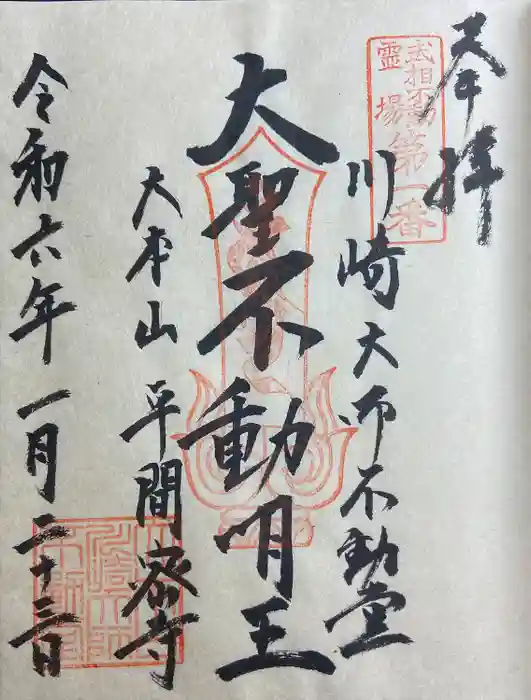 奉拝
武相不動
霊場
第一番
川崎大師不動堂
大聖不動明王
大本山 平間密寺
令和六年一月二十三日